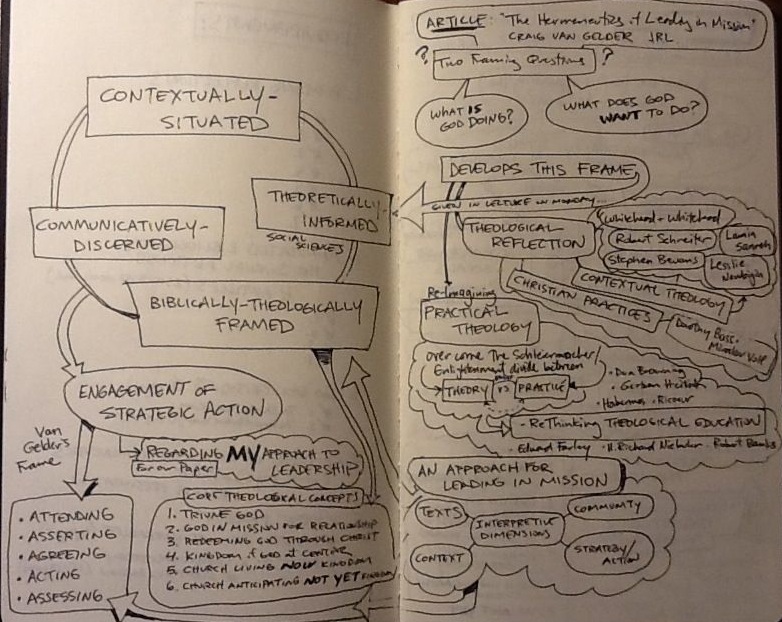 CONTEXTUALLY-
SITUATED
THEORETICALLY-
INFORMED
SOCIAL
SCIENCES
COMMUNICATIVELY-
DISCERNED
BIBLICALLY-THEOLOGICALLY
FRAMED
ENGAGEMENT OF
STRATEGIC ACTION
Van
Gelder's
Frame
REGARDING MY APPROACH TO
LEADERSHIP
For our Paper
• ATTENDING
• ASSERTING
• AGREEING
• ACTING
• ASSESSING
CORE THEOLOGICAL CONCEPTS
1. TRIUNE GOD
2. GOD IN MISSION FOR RELATIONSHIP
3. REDEEMING GOD THROUGH CHRIST
4. KINGDOM of GOD at CENTER
5. CHURCH LIVING NOW KINGDOM
6. CHURCH ANTICIPATING NOT YET KINGDOM
ARTICLE: "The Hermeneutics of Leading in Mission"
CRAIG VAN GELDER JRL
? Two Framing Questions ?
WHAT IS
GOD DOING?
WHAT DOES GOD
WANT TO DO?
DEVELOPS THIS FRAME
GIVEN IN LECTURE IN MONDAY...
THEOLOGICAL
REFLECTION
Whitehead - Whitehead
Robert Schreiter
Lamin
Sanneh
Stephen Bevans
Leslie
Newbigin
CONTEXTUAL THEOLOGY
CHRISTIAN PRACTICES
Dorothy Bass •
Miroslav Volf
Re-Imagining
PRACTICAL
THEOLOGY
overcome The Schleiermacher/
Enlightenment divide between
THEORY VS PRACTICE
• Don Browning
• Gerben Heitink
• Habermas • Ricoeur
• ReThinking THEOLOGICAL EDUCATION
• Edward Farley • H. Richard Niebuhr • Robert Banks
AN APPROACH FOR
LEADING IN MISSION
TEXTS
COMMUNITY
INTERPRETIVE
DIMENSIONS
CONTEXT
STRATEGY/
ACTION